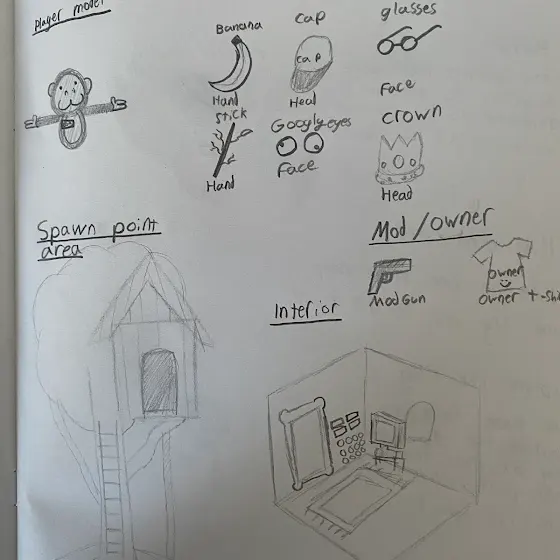 Player model
Banana
Hand
cap
cap
Head
glasses
Face
stick
Hand
Googly eyes
Face
crown
Head
Spawn point
area
Mod/owner
ModGun
owner
owner
Interior